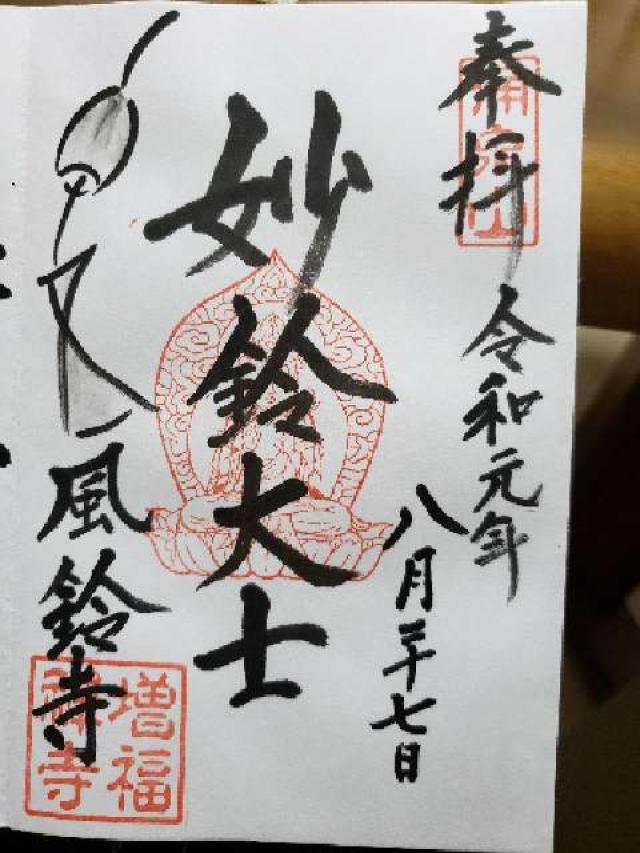 奉拝
令和元年
八月二十七日
妙鈴大士
風鈴寺
増福
寺